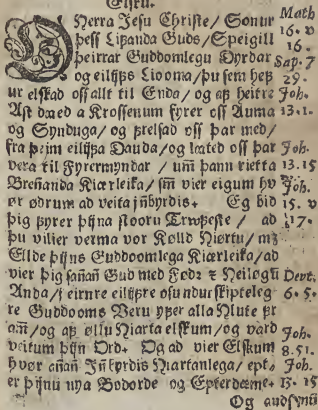 Elsku.
HErra Jesu Christe/ Sonur
þess Lifanda Guds/ Speigill
þeirrar Guddomlegu Dyrdar
og eilijfs Liooma/ þu sem hef
ur elskad oss allt til Enda/ og af heitre
Ast dæed a Krossenum fyrer oss Auma
og Synduga/ og frelsad oss þar med/
fra þeim eilijfa Dauda/ og lated oss þar
vera til Fyrermyndar / um þann rietta
Breñanda Kiærleika/ sm̄ vier eigum hv
ør odrum ad veita jñbyrdis. Eg bid
þig fyrer þijna stooru Trwfeste / ad
þu vilier verma vor Kølld Hiørtu/ mz
Ellde þijns Guddoomlega Kiærleika/ ad
vier þig sañañ Gud med Fødr z Heilogū
Anda/ j eirnre eilijfre osundurskiptelег
re Guddooms Veru yfer alla Hlute fr
am̄/ og af øllu Hiarta elskum/ og vard
veitum þijn Ord. Og ad vier Elskum
hvør añañ Jñbyrdis Hiartanlega/ ept
er þijnu nya Bodorde og Epterdæme.
Og audsynū
Math
16. v
16.
Sap. 7
29.
Joh.
13. 1.
Joh.
13. 15
Joh.
15. v
17.
Devt.
6. 5.
Joh.
8. 51.
Joh.
13. 15